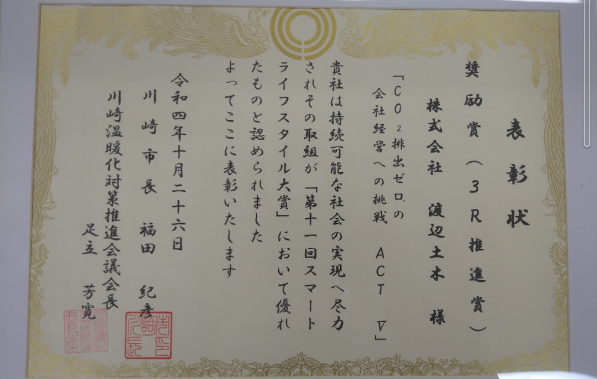 表彰状
奨励賞（３Ｒ推進賞）
株式会社 渡辺土木 様
「CO₂排出ゼロの
会社経営への挑戦 ACT Ⅴ」
貴社は持続可能な社会の実現へ尽力
されその取組が「第十一回スマート
ライフスタイル大賞」において優れ
たものと認められました
よってここに表彰いたします
令和四年十月二十六日
川崎市長 福田 紀彦
川崎温暖化対策推進会議会長
足立 芳寛